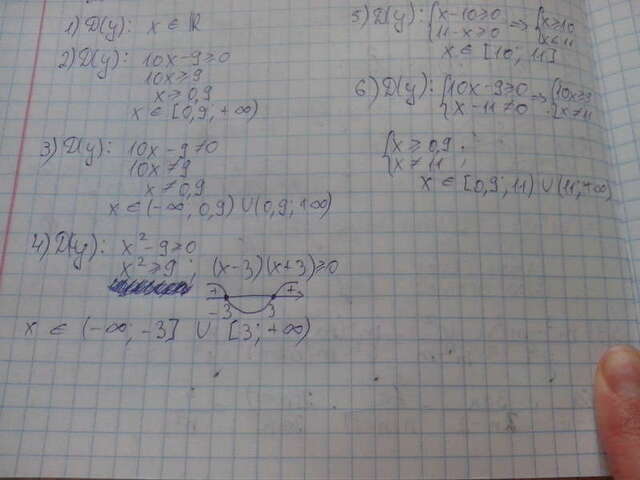 1) D(y): x ∈ ℝ
2) D(y): 10x-9≥0
10x≥9
x≥0,9
x ∈ [0,9; +∞)
3) D(y): 10x-9≠0
10x≠9
x≠0,9
x ∈ (-∞; 0,9) ∪ (0,9; +∞)
4) D(y): x²-9≥0
x²≥9; (x-3)(x+3)≥0
+ +
-3 3
x ∈ (-∞; -3] ∪ [3; +∞)
5) D(y): {x-10≥0 ⇒ {x≥10
{11-x≥0 {x≤11
x ∈ [10; 11]
6) D(y): {10x-9≥0 ⇒ {10x≥9
{x-11≠0 {x≠11
{x≥0,9
{x≠11 ;
x ∈ [0,9; 11) ∪ (11; +∞)